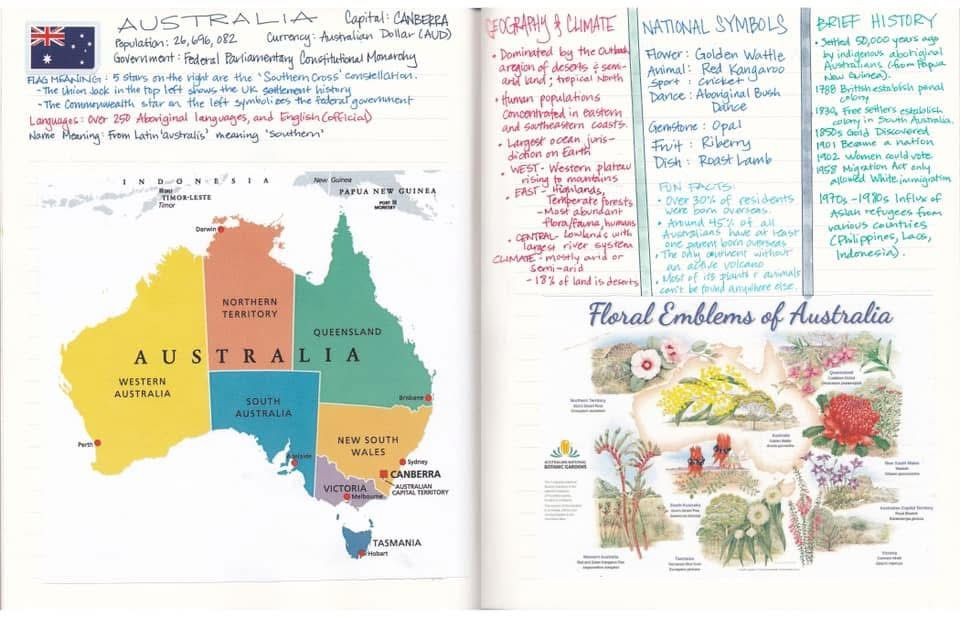 AUSTRALIA
Capital: CANBERRA
Population: 26,696,082
Currency: Australian Dollar (AUD)
Government: Federal Parliamentary Constitutional Monarchy
FLAG MEANING: 5 stars on the right are the 'Southern Cross' constellation.
- The Union Jack in the top left shows the UK settlement history
- The Commonwealth star on the left symbolizes the federal government
Languages: Over 250 Aboriginal languages, and English (official)
Name Meaning: From Latin 'australis' meaning 'southern'
INDONESIA
New Guinea
PAPUA NEW GUINEA
TIMOR-LESTE
Timor
PORT
MORESBY
Darwin
NORTHERN
TERRITORY
QUEENSLAND
AUSTRALIA
WESTERN
AUSTRALIA
SOUTH
AUSTRALIA
Brisbane
Perth
NEW SOUTH
WALES
Adelaide
Sydney
CANBERRA
AUSTRALIAN
CAPITAL TERRITORY
VICTORIA
Melbourne
TASMANIA
Hobart
GEOGRAPHY & CLIMATE
• Dominated by the Outback
a region of deserts & semi-
arid land; tropical North
• Human populations
concentrated in eastern
and southeastern coasts.
• Largest ocean juris-
diction on Earth
• WEST - Western plateau
rising to mountains
• EAST - Highlands,
Temperate forests
- Most abundant
flora/fauna, humans
• CENTRAL - Lowlands with
largest river system
CLIMATE - mostly arid or
semi-arid
- 18% of land is deserts
NATIONAL SYMBOLS
Flower: Golden Wattle
Animal: Red Kangaroo
Sport: Cricket
Dance: Aboriginal Bush
Dance
Gemstone: Opal
Fruit: Riberry
Dish: Roast Lamb
FUN FACTS:
• Over 30% of residents
were born overseas.
• Around 45% of all
Australians have at least
one parent born overseas
• The only continent without
an active volcano
• Most of its plants & animals
can't be found anywhere else.
BRIEF HISTORY
• Settled 50,000 years ago
by indigenous aboriginal
Australians (from Papua
New Guinea).
1788 British establish penal
colony
Free settlers establish
colony in South Australia.
1850s Gold Discovered
1901 Became a nation
1902 Women could vote
1958 Migration Act only
allowed White immigration
1970s - 1980s Influx of
Asian refugees from
various countries
(Philippines, Laos,
Indonesia).
Floral Emblems of Australia
Queensland
Northern Territory
Australia
AUSTRALIAN NATIONAL
BOTANIC GARDENS
New South Wales
South Australia
Australian Capital Territory
Western Australia
Tasmania